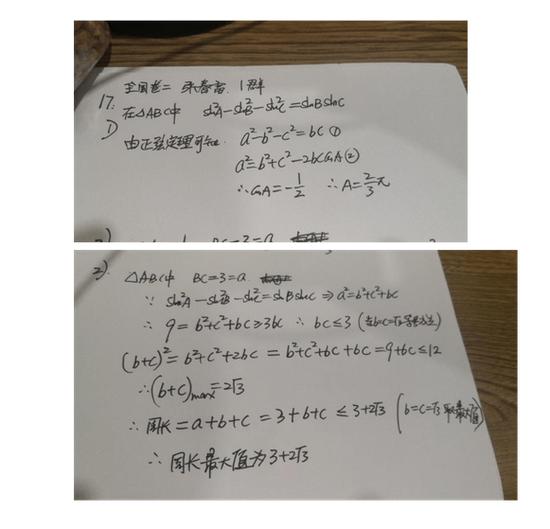 全国卷二
17. 在△ABC中 sin²A-sin²B-sin²C=sinBsinC
①
由正弦定理可知 a²-b²-c²=bc ①
a²=b²+c²-2bccosA ②
∴cosA=-1/2 ∴A=2/3π
2). △ABC中 BC=3=a
∵ sin²A-sin²B-sin²C=sinBsinC ⇒ a²=b²+c²+bc
∴ 9=b²+c²+bc≥3bc ∴ bc≤3 (当b=c=√3等号成立)
(b+c)²=b²+c²+2bc = b²+c²+bc+bc=9+bc≤12
∴(b+c)max=2√3
∴ 周长=a+b+c=3+b+c≤3+2√3 (b=c=√3取最大值)
∴ 周长最大值为3+2√3